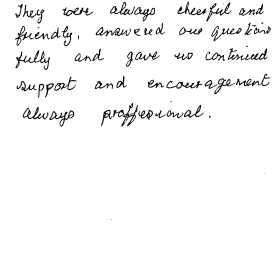 They were always cheerful and
friendly, answered our questions
fully and gave us continued
support and encouragement
always proffesional.